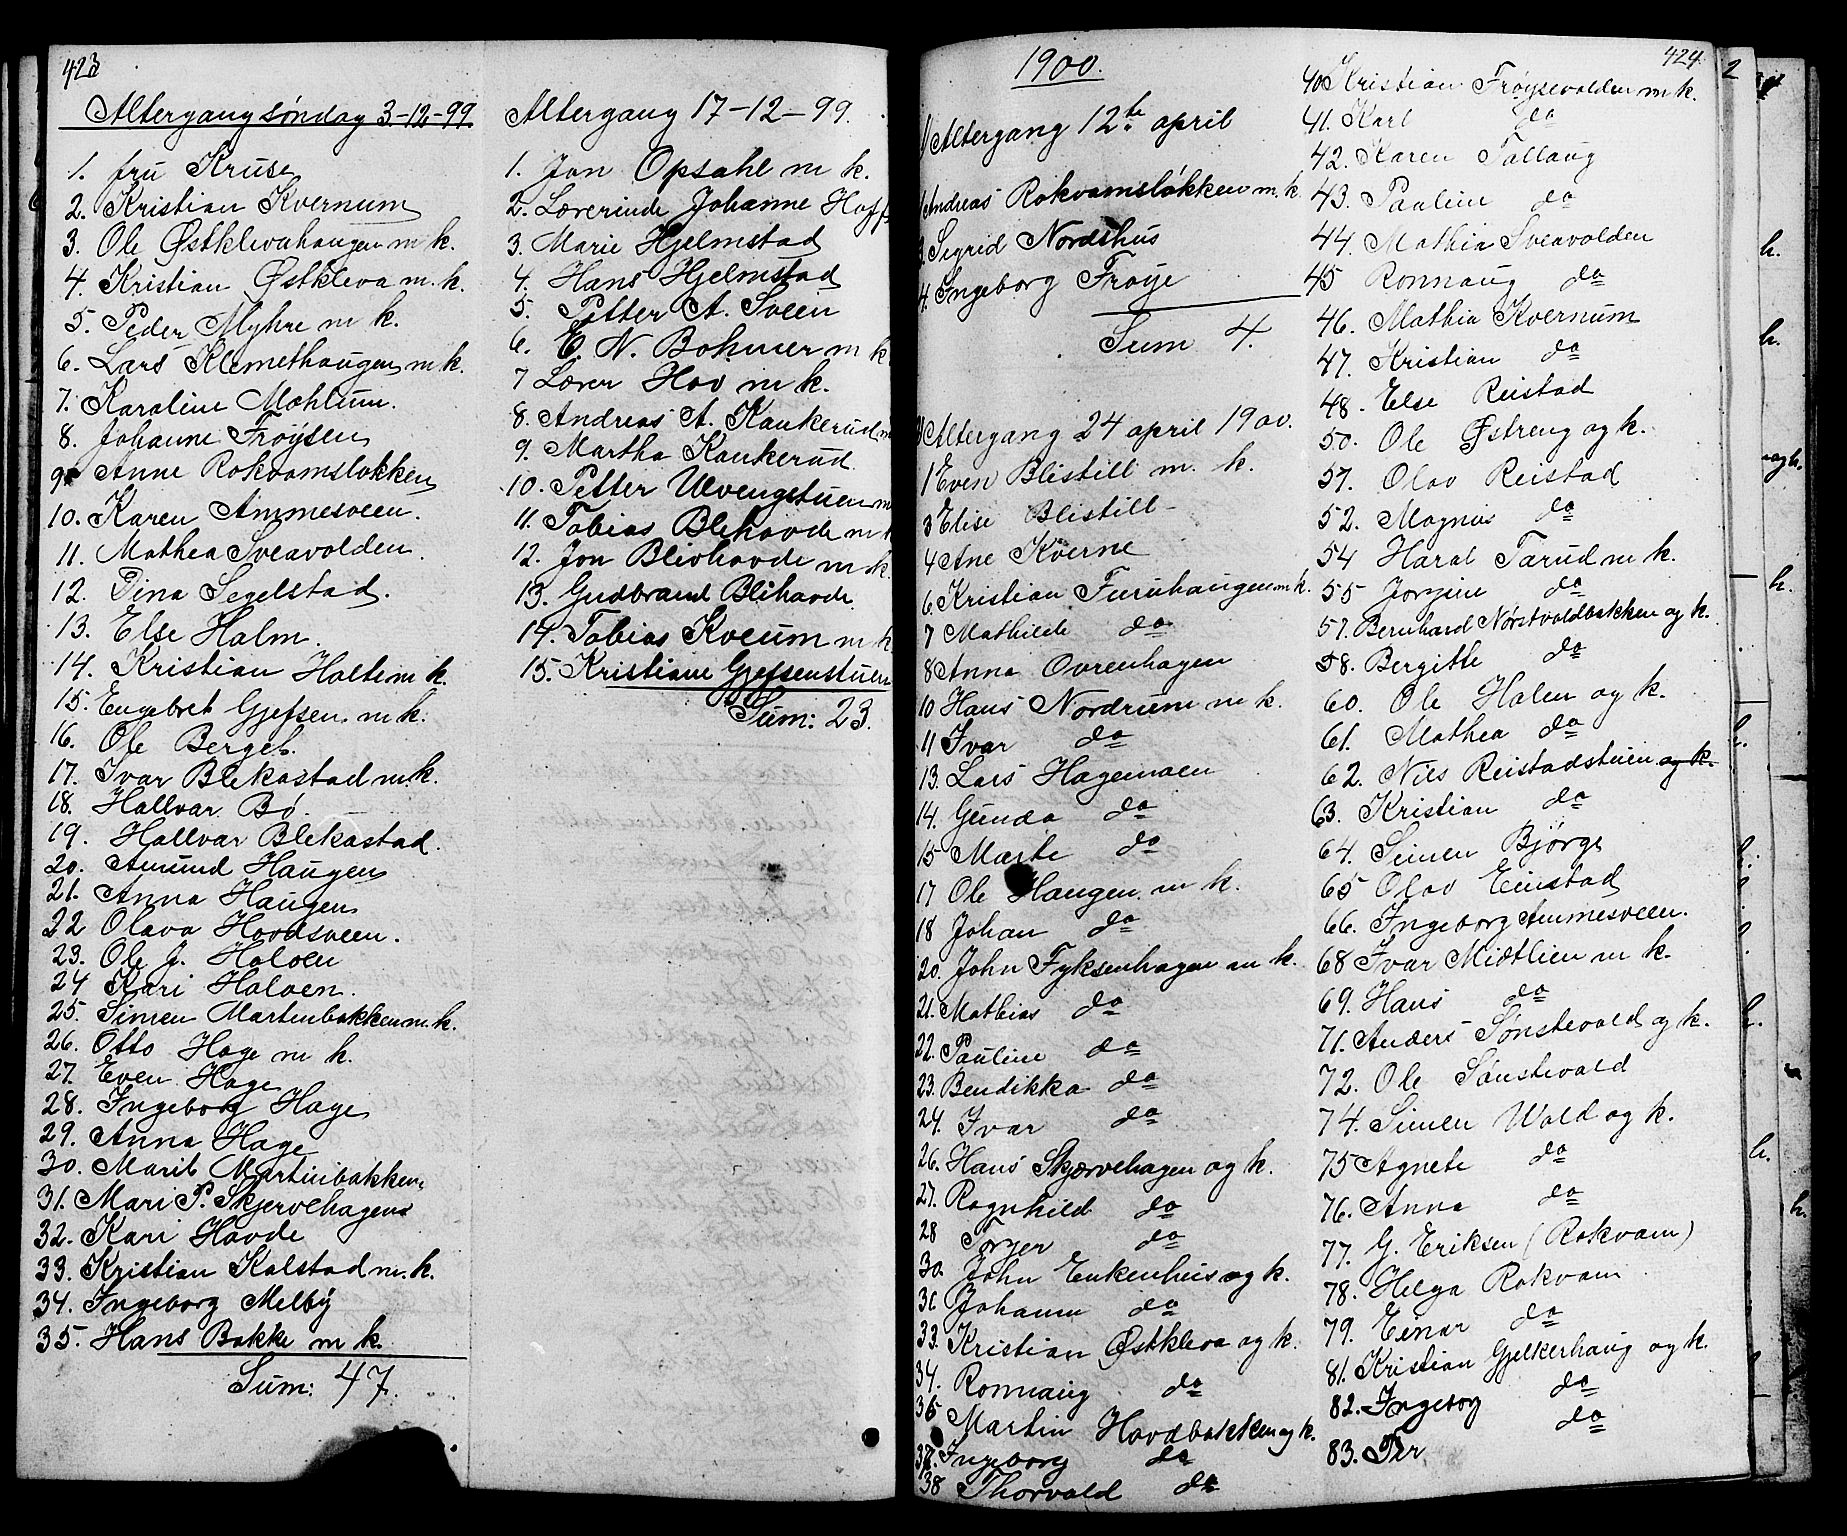 423
Altergang søndag 3-12-99.
1. fru Kruse
2. Kristian Kvernum
3. Ole Østklevahaugen m k.
4. Kristian Østkleva m. k.
5. Peder Myhre m k.
6. Lars Klemethaugen m k.
7. Karoline Mæhlum.
8. Johanne Frøysen
9. Anne Rokvamsløkken
10. Karen Ammesveen.
11. Mathea Sveavolden.
12. Pina Segelstad.
13. Else Holm.
14. Kristian Holte m k.
15. Engebret Gjefsen. m k.
16. Ole Berget.
17. Ivar Blekastad m k.
18. Hallvar Bø.
19. Hallvar Blekastad.
20. Amund Haugen
21. Anna Haugen
22 Olava Hovdsveen.
23. Ole J. Holoen
24 Kari Holoen.
25. Simen Martinbakken m. k.
26. Otto Hage m k.
27. Even Hage
28. Ingeborg Hage
29. Anna Hage
30. Marit Martinbakken
31. Mari P. Skjervehagen
32. Kari Hovde
33. Kristian Kalstad m. k.
34. Ingeborg Melby
35. Hans Bakke m k.
Sum: 47.
Altergang 17-12-99.
1. Jon Opsahl m k.
2. Lærerinde Johanne Hoff
3. Marie Hjelmstad
4. Hans Hjelmstad
5. Petter A. Sveen
6. E. N. Bohmer m k
7 Lærer Hov m k.
8. Andreas A. Kankerud m
9. Martha Kankerud
10. Petter Ulvengstuen m
11. Tobias Blehovde m k
12. Jon Blevhovde m k.
13. Gudbrand Blihovde
14. Tobias Kveum m k
15. Kristiane Gjefsenstuen
Sum: 23.
1900.
424
Altergang 12te april
Andreas Rokvamsløkken m. k
Sigrid Nordshus
4. Ingeborg Frøye
Sum 4.
Altergang 24 april 1900.
1 Even Blistill m. k.
3 Elise Blistill
4 Ane Kverne
6. Kristian Furuhaugen m k.
7 Mathilde do
8 Anna Ovrenhagen
10 Hans Nordrum m k.
11 Ivar do
13. Lars Hagemoen
14. Gunda do
15 Marte do
17 Ole Haugen m k.
18 Johan do
20. John Fyksenhagen m k.
21. Mathias do
22. Pauline do
23. Bendikka do
24. Ivar do
26. Hans Skjærvehagen og k.
27. Ragnhild do
28 Torger do
30. John Enkenhus og k.
31 Johanne do
33. Kristian Østkleva og k.
34. Ronnaug do
36 Martin Hovdbakken og k.
37. Ingeborg do
38 Thorvald do
40 Kristian Frøysevolden m k.
41. Karl do
42. Karen Tollaug
43. Pauline do
44. Mathia Sveavolden
45 Ronnaug do
46. Mathia Kvernum
47. Kristian do
48. Else Reistad
50. Ole Østreng og k.
51. Olav Reistad
52. Magnus do
54 Haral Tarud m k.
55 Jorgine do
57. Bernhard Nørstvoldbakken og k.
58. Bergitte do
60. Ole Holen og k.
61. Mathea do
62. Nils Reistadstuen og k.
63. Kristian do
64. Simen Bjørge
65 Olav Einstad
66. Ingeborg Ammesveen.
68 Ivar Midtlien m k.
69. Hans do
71. Anders Sønstevold og k.
72. Ole Sønstevold
74. Simen Wold og k.
75 Agnete do
76. Anna do
77. G. Eriksen (Rokvam)
78. Helga Rokvam
79. Einar do
81. Kristian Gjelkerhaug og k.
82. Ingeborg do
83. Per do